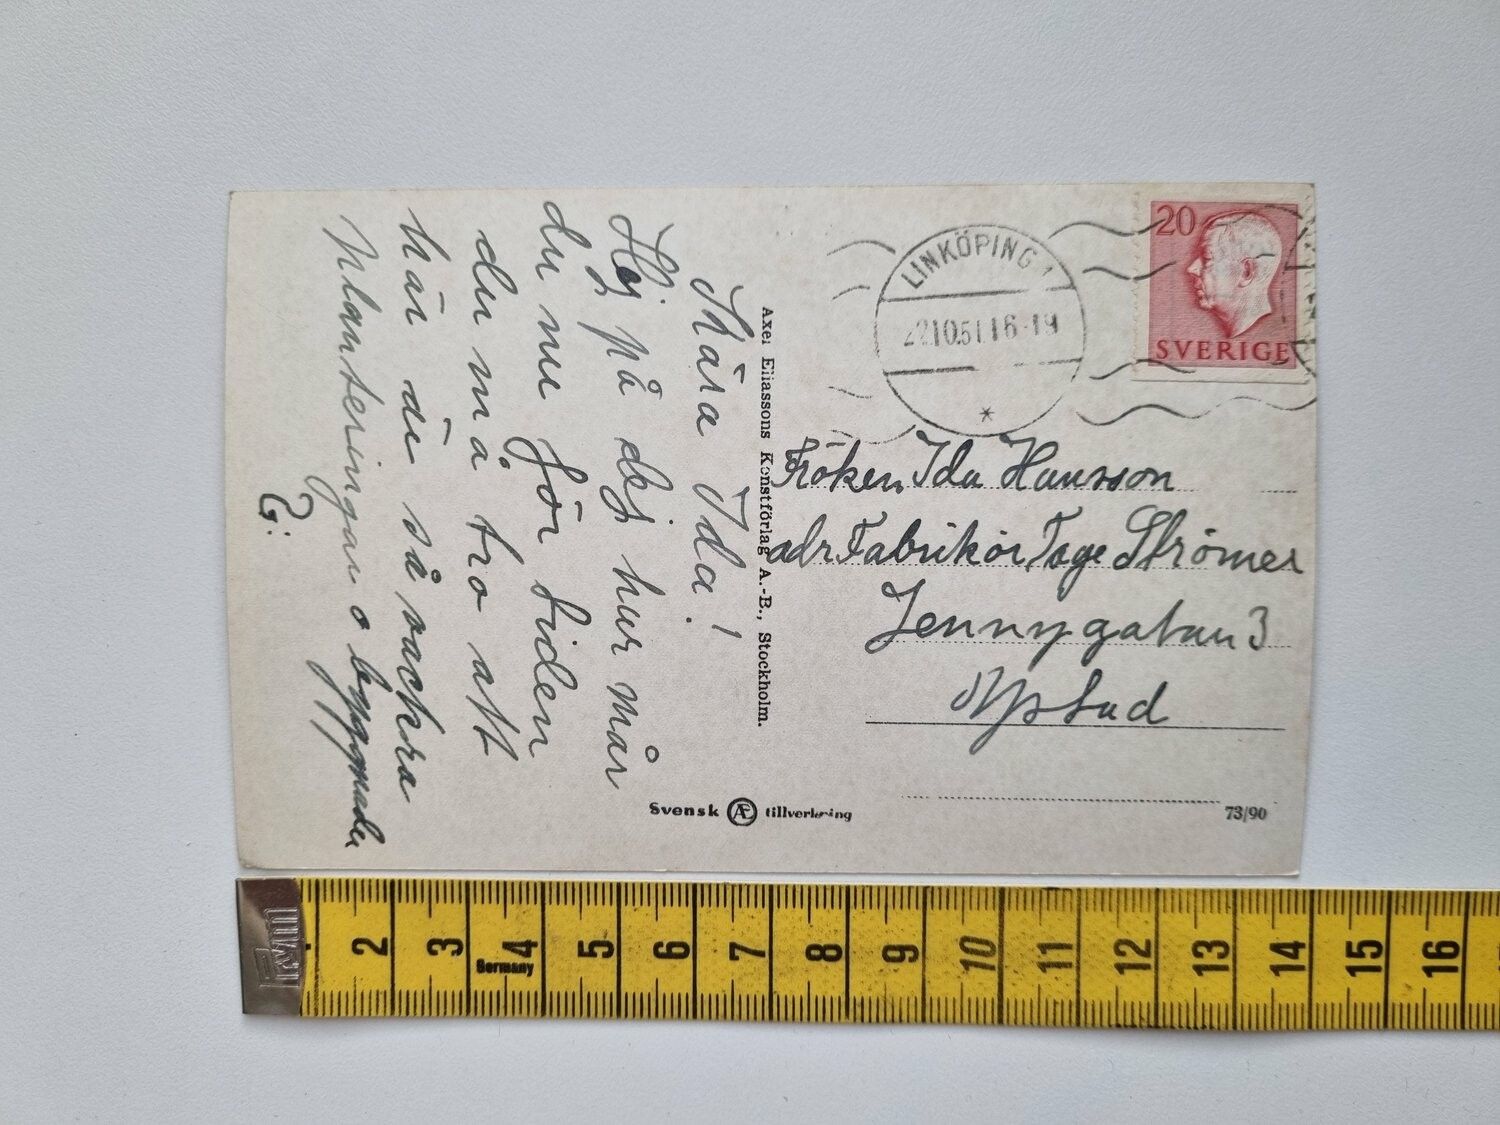 Kära Ida!
Hej på dej hur mår
du nu för tiden
du må tro att
här är så vackra
planteringar o byggnader
G:
Axel Eliassons Konstförlag A.-B., Stockholm.
Svensk Æ tillverkning
LINKÖPING 1
22.10.51.16-19
20
SVERIGE
Fröken Ida Hansson
adr Fabrikör Tage Strömer
Jennygatan 3
Ystad
73/90
PWM
2 3 4 5 6 7 8 9 10 11 12 13 14 15 16
Germany